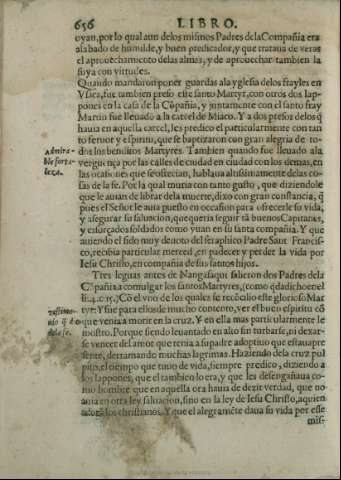 656 LIBRO.
oyan, por lo qual aun delos mismos Padres dela Compañia era
alabado de humilde, y buen predicador, y que trataua de veras
el aprouechamiento delas almas, y de aprouechar tambien la
suya con virtudes.
Quando mandaron poner guardas ala yglesia delos frayles en
Vsaca, fue tambien preso este santo Martyr, con otros dos Iap-
pones en la casa de la Cõpañia, y juntamente con el santo fray
Martin fue lleuado a la carcel de Miaco. Y a dos presos delos q̃
hauia en aquella carcel, les predico el particularmente con tan
to feruor y espiritu, que se baptizaron con gran alegria de to-
Admira-
ble forta-
leza.
dos los benditos Martyres. Tambien quando fue lleuado ala
verguença por las calles de ciudad en ciudad con los demas, en
las ocasiones que se ofrecian, hablaua altissimamente delas co-
sas de la fe. Por la qual muria con tanto gusto, que diziendole
que le auian de librar dela muerte, dixo con gran constancia, q̃
pues el Señor le auia puesto en occasion para ofrecerle su vida,
y asegurar su saluacion, que queria seguir tã buenos Capitanes,
y esforçados soldados como yuan en su santa compañia. Y que
auiendo el sido muy deuoto del seraphico Padre Sant Francis-
co, recebia particular merced, en padecer y perder la vida por
Iesu Christo, en compañia de sus santos hijos.
Tres leguas antes de Nangasaqui salieron dos Padres dela
Cõpañia a comulgar los santos Martyres, (como q̃da dicho en el
li. 4. c. 15.) Cõ el vno de los quales se recõcilio este glorioso Mar
tyr: Y fue para ellos de mucho contento, ver el buen espiritu cõ
Testimo-
nio q̃ dio
dela fe.
que venia a morir en la cruz. Y en ella mas particularmente le
mostro. Porque siendo leuantado en alto sin turbarse, ni dexar-
se vencer del amor que tenia a su padre adoptiuo que estaua pre
sente, derramando muchas lagrimas. Haziendo dela cruz pul
pito, el tiempo que tuuo de vida, siempre predico, diziendo a
los Iappones, que el tambien lo era, y que les desengañaua co-
mo hombre que en aquella ora hauia de dezir verdad, que no
auia en otra ley saluacion, sino en la ley de Iesu Christo, aquien
adorã los christianos. Y que el alegramẽte daua su vida por esse
mis-